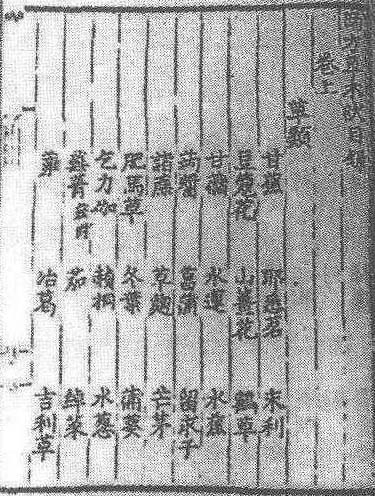 南方草木狀目録
卷上
草類
甘蕉 耶悉茗 末利
豆蔻花 山薑花 鶴草
甘藷 水蓮 水蕉
蒟醬 菖蒲 留求子
諸蔗 草麴 芒茅
肥馬草 冬葉 蒲葵
乞力伽 赬桐 水葱
蕪菁 芥附 茄 綽菜
蕹 冶葛 吉利草